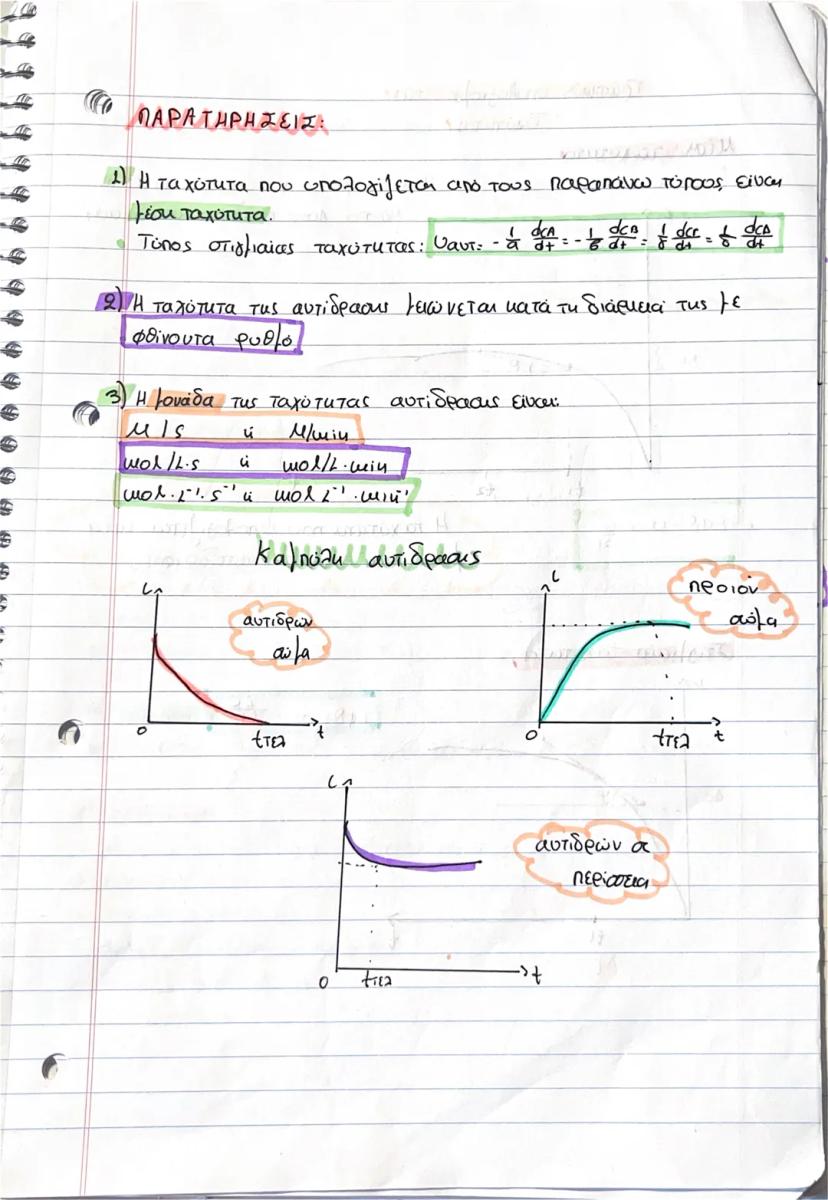 ΠΑΡΑΤΗΡΗΣΕΙΣ:
1) Η ταχύτητα που υπολογίζεται από τους παραπάνω τύπους είναι
μέση ταχύτητα.
• Τύπος στιγμιαίας ταχύτητας: Uαντ: - 1/α dcA/dt = - 1/β dcB/dt = 1/γ dcΓ/dt = 1/δ dcΔ/dt
2) Η ταχύτητα της αντίδρασης μειώνεται κατά τη διάρκειά της με
φθίνοντα ρυθμό.
3) Η μονάδα της ταχύτητας αντίδρασης είναι:
M/s ή M/min
mol/L·s ή mol/L·min
mol·L⁻¹·s⁻¹ ή mol L⁻¹·min⁻¹
Καμπύλη αντίδρασης
C
αντιδρών
σώμα
0
tτελ
t
C
προϊόν
σώμα
0
tτελ
t
C
αντιδρών σε
περίσσεια
0
tτελ
t